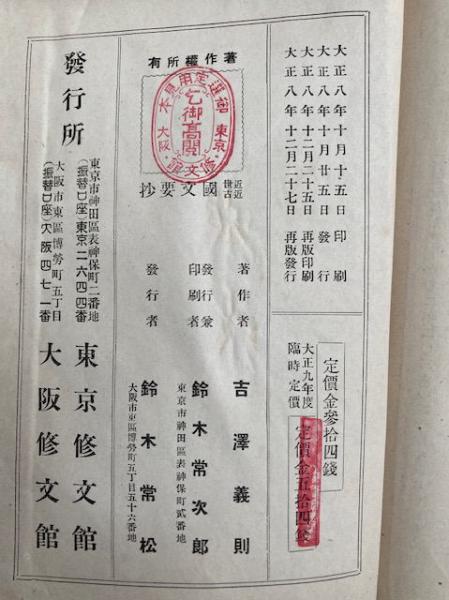 大正八年十月十五日印刷
大正八年十月廿五日發行
大正八年十二月二十五日再版印刷
大正八年十二月二十七日再版發行
定價金參拾四錢
大正九年度
臨時定價
定價金五拾四錢
著作權所有
東京
修文館
大阪
乞御高閲
御選定用見本
近世
近古
國文要抄
著作者
吉澤義則
發行兼
印刷者
鈴木常次郎
東京市神田區表神保町貳番地
發行者
鈴木常松
大阪市東區博勞町五丁目五十六番地
發行所
東京市神田區表神保町二番地
(振替口座)東京二六四四番
東京修文館
大阪市東區博勞町五丁目
(振替口座)大阪四七一番
大阪修文館